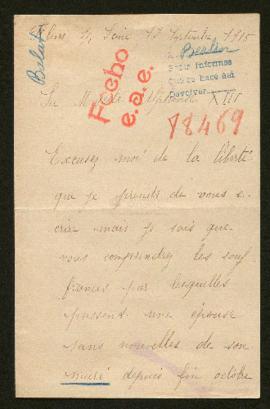 Seine 17 Septembre 1915
Belart
Fecho
e.a.e.
para informe
que se hace así
Devolver
Alphonse XIII
18469
Excusez moi de la liberté
que je prends de vous é-
crire mais je sais que
vous comprendrez les souf-
frances par lesquelles
passent une épouse
sans nouvelles de son
mari depuis fin octobre